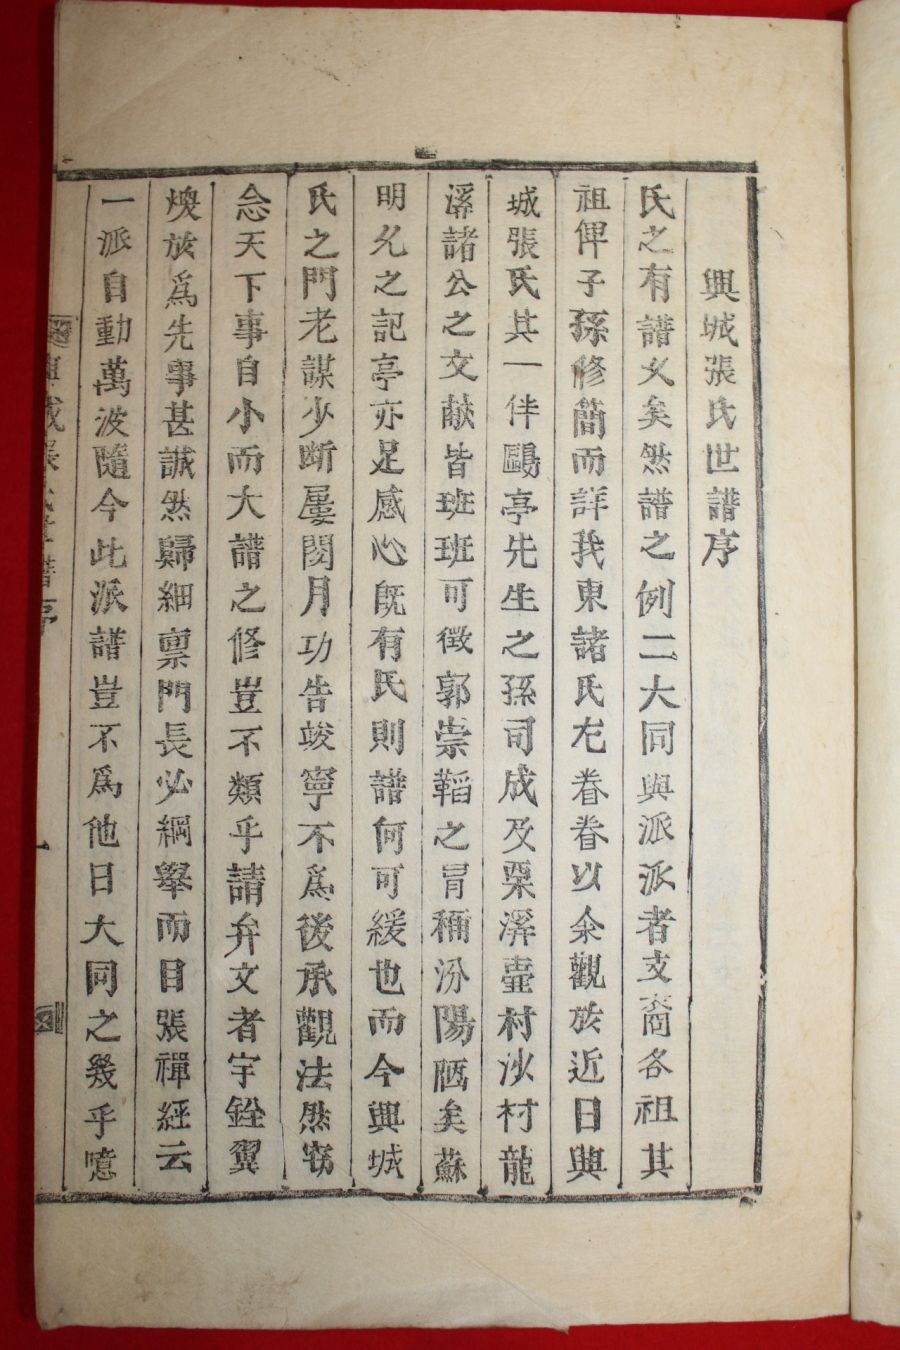 興城張氏世譜序
氏之有譜久矣然譜之例二大同與派派者支裔各祖其
祖俾子孫修簡而詳我東諸氏尤眷眷以余觀於近日與
城張氏其一伴鷗亭先生之孫司成及栗溪壺村沙村龍
溪諸公之文献皆班班可徵郭崇韜之冐稱汾陽陋矣蘇
明允之記亭亦足感心旣有氏則譜何可緩也而今興城
氏之門老謀少斷屢閱月功告竣寧不爲後承觀法然窃
念天下事自小而大譜之修豈不類乎請弁文者宇銓翼
煥於爲先事甚誠然歸細稟門長必綱擧而目張禪經云
一派自動萬波隨今此派譜豈不爲他日大同之幾乎噫
興城張氏世譜 序 一